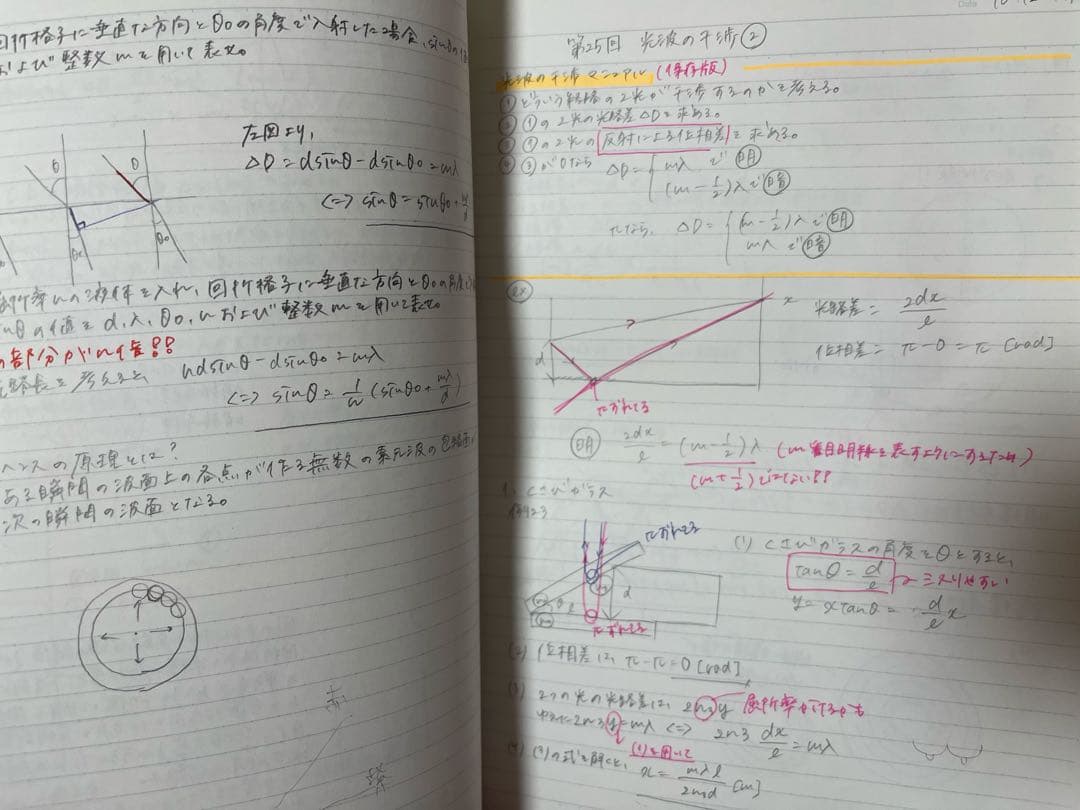 回折格子に垂直な方向とθ0の角度で入射した場合、sinθの値
および整数mを用いて表せ。
左図より、
ΔD = dsinθ - dsinθ0 = mλ
<=> sinθ = sinθ0 + mλ/d
θ
θ
θ0
θ0
折率nの液体を入れ、回折格子に垂直な方向とθ0の角度
sinθの値をd, λ, θ0, nおよび整数mを用いて表せ。
の部分がn倍!!
光路長を考えると ndsinθ - dsinθ0 = mλ
<=> sinθ = 1/n (sinθ0 + mλ/d)
ヘンスの原理とは?
ある瞬間の波面上の各点が作る無数の素元波の包絡面
次の瞬間の波面となる。
第25回 光波の干渉②
光波の干渉マニュアル (保存版)
① どういう経路の2光が干渉するのかを考える。
② ①の2光の光路差ΔDを求める。
③ ①の2光の反射による位相差を求める。
④ ③が0なら ΔD = { mλ で明
(m - 1/2)λ で暗
πなら、 ΔD = { (m - 1/2)λ で明
mλ で暗
ex
d
x
πずれてる
光路差 = 2dx/l
位相差 = π - 0 = π [rad]
明 2dx/l = (m - 1/2)λ (m番目明線を表すようにするため)
(m + 1/2)じゃない!!
1. くさびガラス
例題23
πずれてる
d
θ
πずれてる
(1) くさびガラスの角度をθとすると、
tanθ = d/l ミスりやすい
y = xtanθ = d/l x
(2) 位相差は、π - π = 0 [rad]
(3) 2つの光の光路差は、2n3y 屈折率
ゆえに 2n3y = mλ <=> 2n3 dx/l = mλ
(1)を用いて
(4) (3)の式を解くと、 x = mλl/2n3d [m]